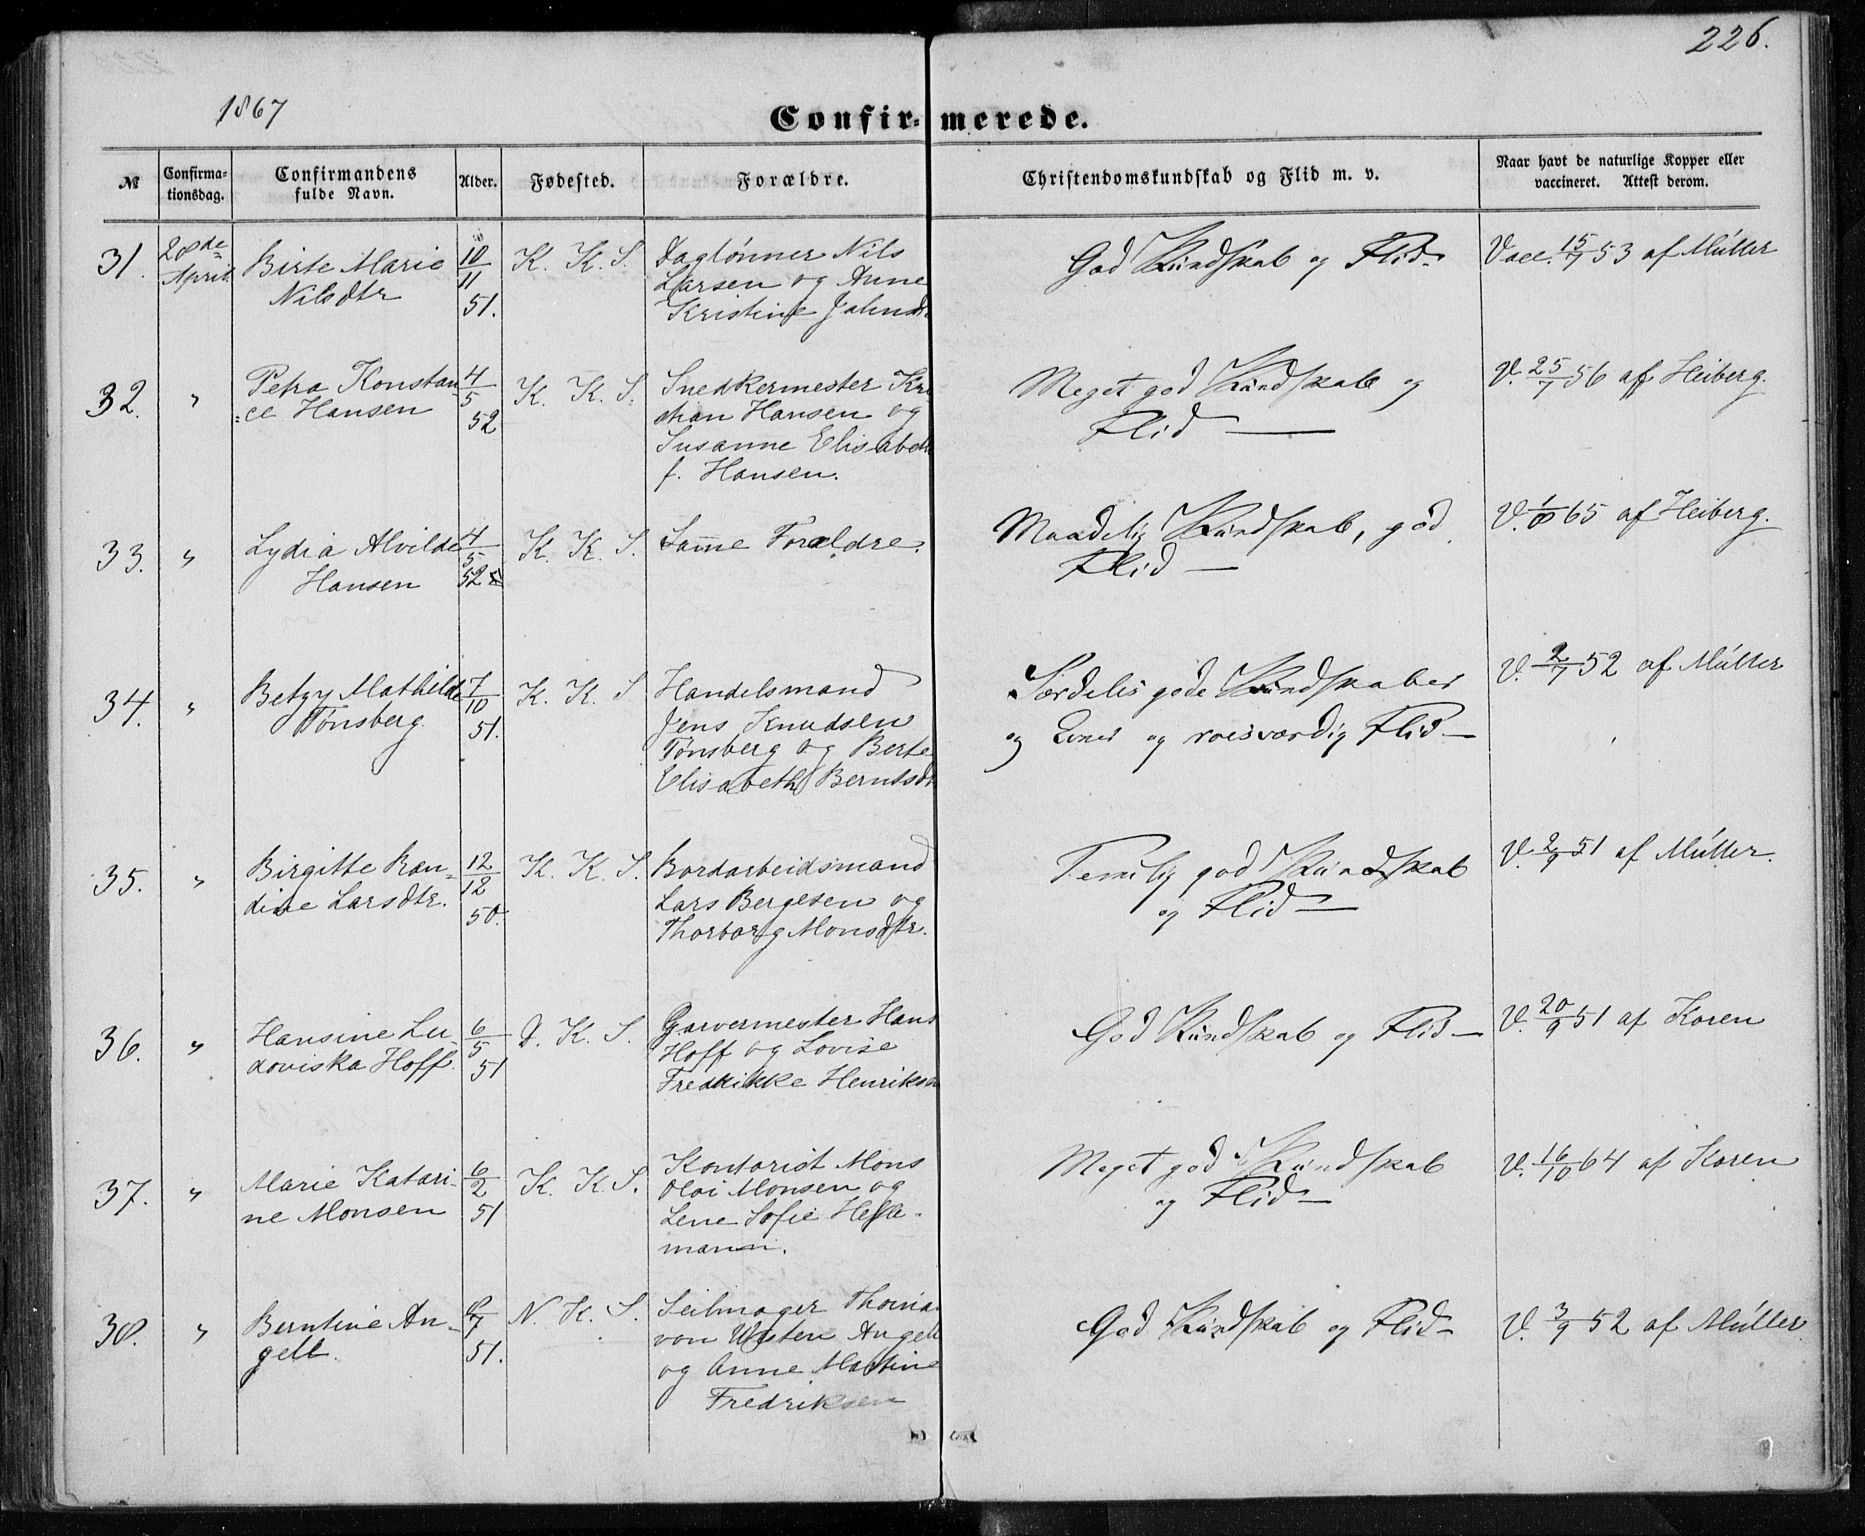 226.
1867
Confirmerede.
№ Confirmationsdag. Confirmandens fulde Navn. Alder. Fødested. Forældre. Christendomskundskab og Flid m. v. Naar havt de naturlige Kopper eller vaccineret. Attest derom.
31. 28de April Birte Marie 10/11 51. K. K. S. Daglønner Nils God Kundskab og Flid — Vacc. 15/7 53 af Müller
Nilsdtr Larsen og Anne
Kristine
32. " Petra Konstan- 4/5 52 K. K. S. Snedkermester Kri Meget god Kundskab og V. 25/7 56 af Heiberg.
=ce Hansen stian Hansen og Flid —
Susanne Elisabeth
f. Hansen.
33. " Lydia Alvilde 4/5 52 K. K. S. Samme Forældre. Maadelig Kundskab, god V. 1/8 65 af Heiberg.
Hansen Flid —
34. " Betzy Mathilde 7/10 51. K. K. S Handelsmand Særdelis gode Kundskaber V. 2/7 52 af Müller
Tønsberg. Jens Knudsen og Evner og roesværdig Flid —
Tønsberg og Berte
Elisabeth Berntsdt
35. " Birgitte Ran- 12/12 50. K. K. S. Bordarbeidsmand Temelig god Kundskab V. 2/9 51 af Müller.
dine Larsdtr. Lars Bergesen og og Flid —
Thorborg Monsdtr.
36. " Hansine Lu- 6/5 51 D. K. S. Garvermester Hans God Kundskab og Flid — V. 20/9 51 af Koren
doviska Hoff. Hoff og Lovise
Fredrikke Henriksen
37. " Marie Katari- 6/2 51 K. K. S. Kontorist Mons Meget god Kundskab V. 16/10 64 af Koren
ne Monsen Olai Monsen og og Flid —
Lene Sofie
mann.
38. " Berntine An- 6/7 51. N. K. S. Seilmager Thomas God Kundskab og Flid — V. 3/9 52 af Müller.
gell. von Westen Angell
og Anne Martine
Fredriksen